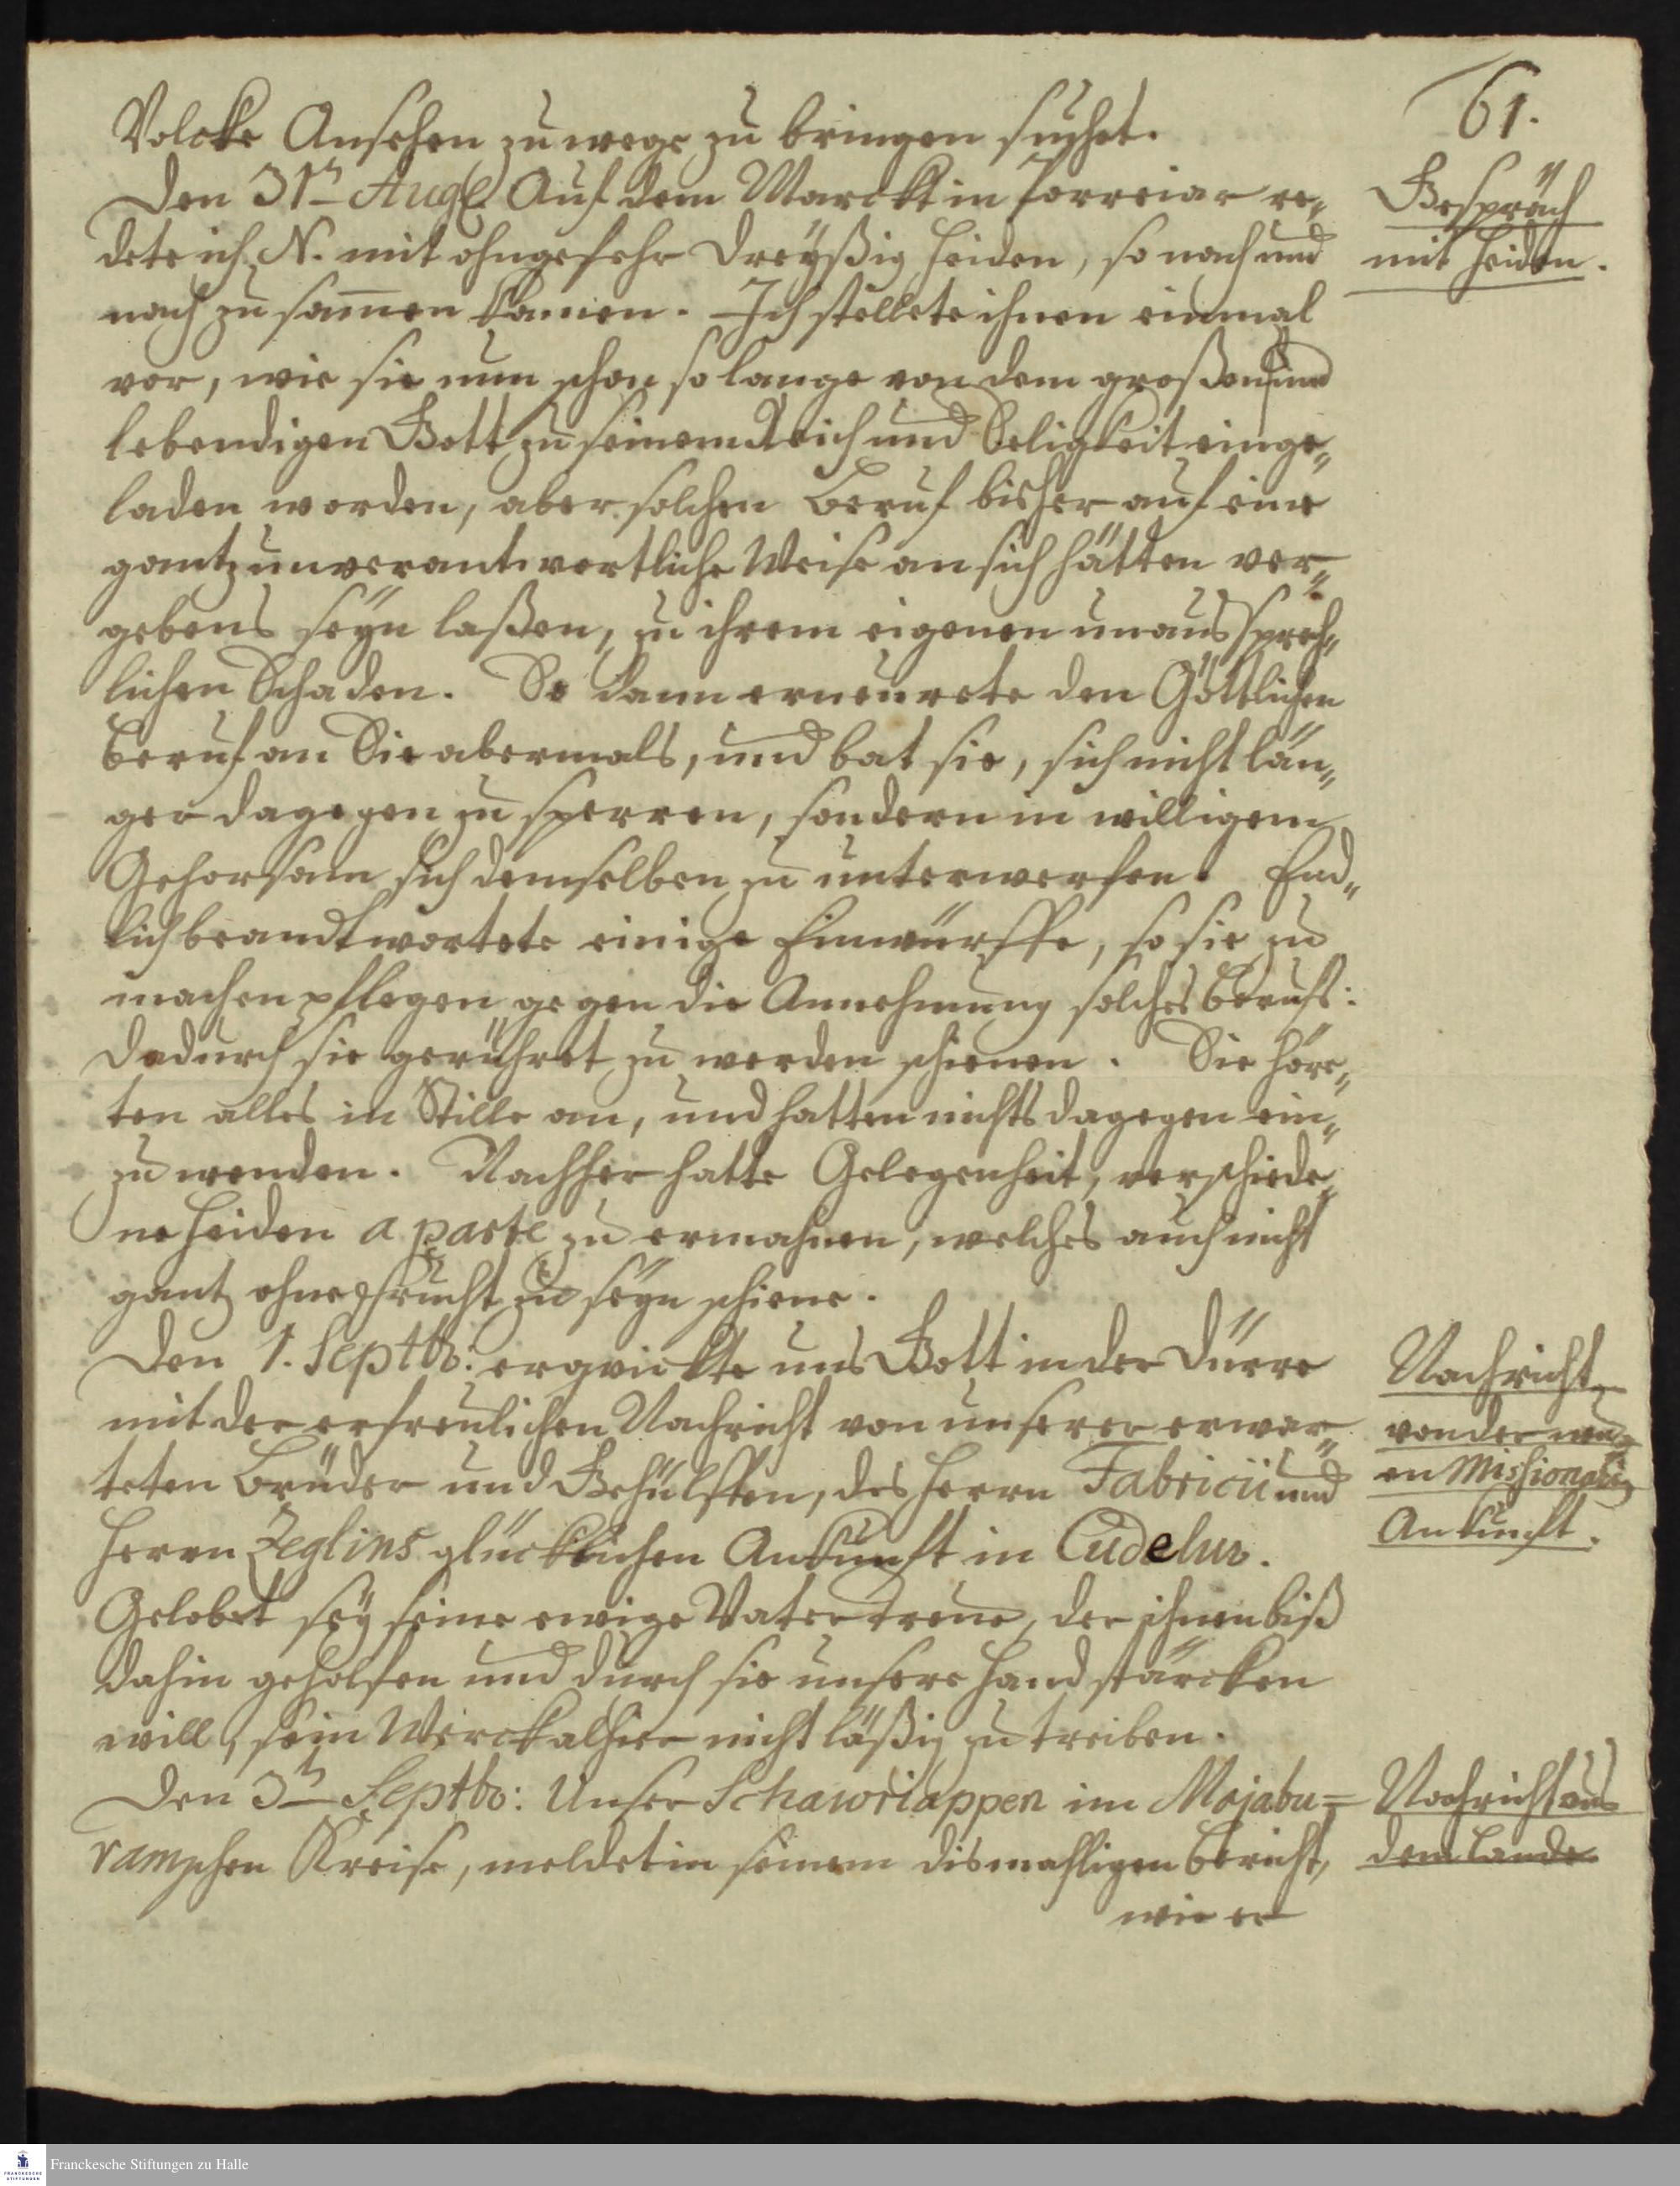 61.
Volcke Ansehen zu wege zu bringen suchet.
Den 31ⁿ Aug. Auf dem Marckt in Porreiar re„
dete ich N. mit ohngefehr dreyßig Heiden, so nach und
nach zu sam̄en kamen. Ich stellete ihnen einmal
vor, wie sie nun schon so lange von dem großen und
lebendigen Gott zu seinem Reich und Seligkeit einge„
laden worden, aber solchen Beruf bisher auf eine
gantz unverantwortliche Weise an sich hätten ver„
gebens seyn laßen, zu ihrem eigenen unaussprech„
lichen Schaden. So dann erneurete den Göttlichen
Beruf an Sie abermals, und bat sie, sich nicht län„
ger dagegen zu sperren, sondern in willigem
Gehorsam sich demselben zu unterwerfen. End„
lich beandtwortete einige Einwürffe, so sie zu
machen pflegen gegen die Annehmung solches Berufs:
dadurch sie gerühret zu werden schienen. Sie höre„
ten alles in Stille an, und hatten nichts dagegen ein„
zu wenden. Nachher hatte Gelegenheit, verschiede„
ne Heiden a parte zu ermahnen, welches auch nicht
gantz ohne Frucht zu seyn schiene.
Den 1. Septbr: erqvickte uns Gott in der Dürre
mit der erfreulichen Nachricht von unserer erwar„
teten Brüder und Gehülffen, des Herrn Fabricii und
Herrn Zeglins glücklichen Ankunft in Cudelur.
Gelobet sey seine ewige Vatertreue, der ihnen biß
dahin geholfen und durch sie unsere Hand stärcken
will, sein Werck alhier nicht läßig zu treiben.
Den 3ⁿ Septbr: Unser Schawrìappen im Majabu=
ramschen Kreise, meldet in seinem dismahligen Bericht,
wie er
Gespräch
mit Heiden.
Nachricht
von der neu„
en Missionarien
Ankunft.
Nachricht aus
dem Lande
Franckesche Stiftungen zu Halle